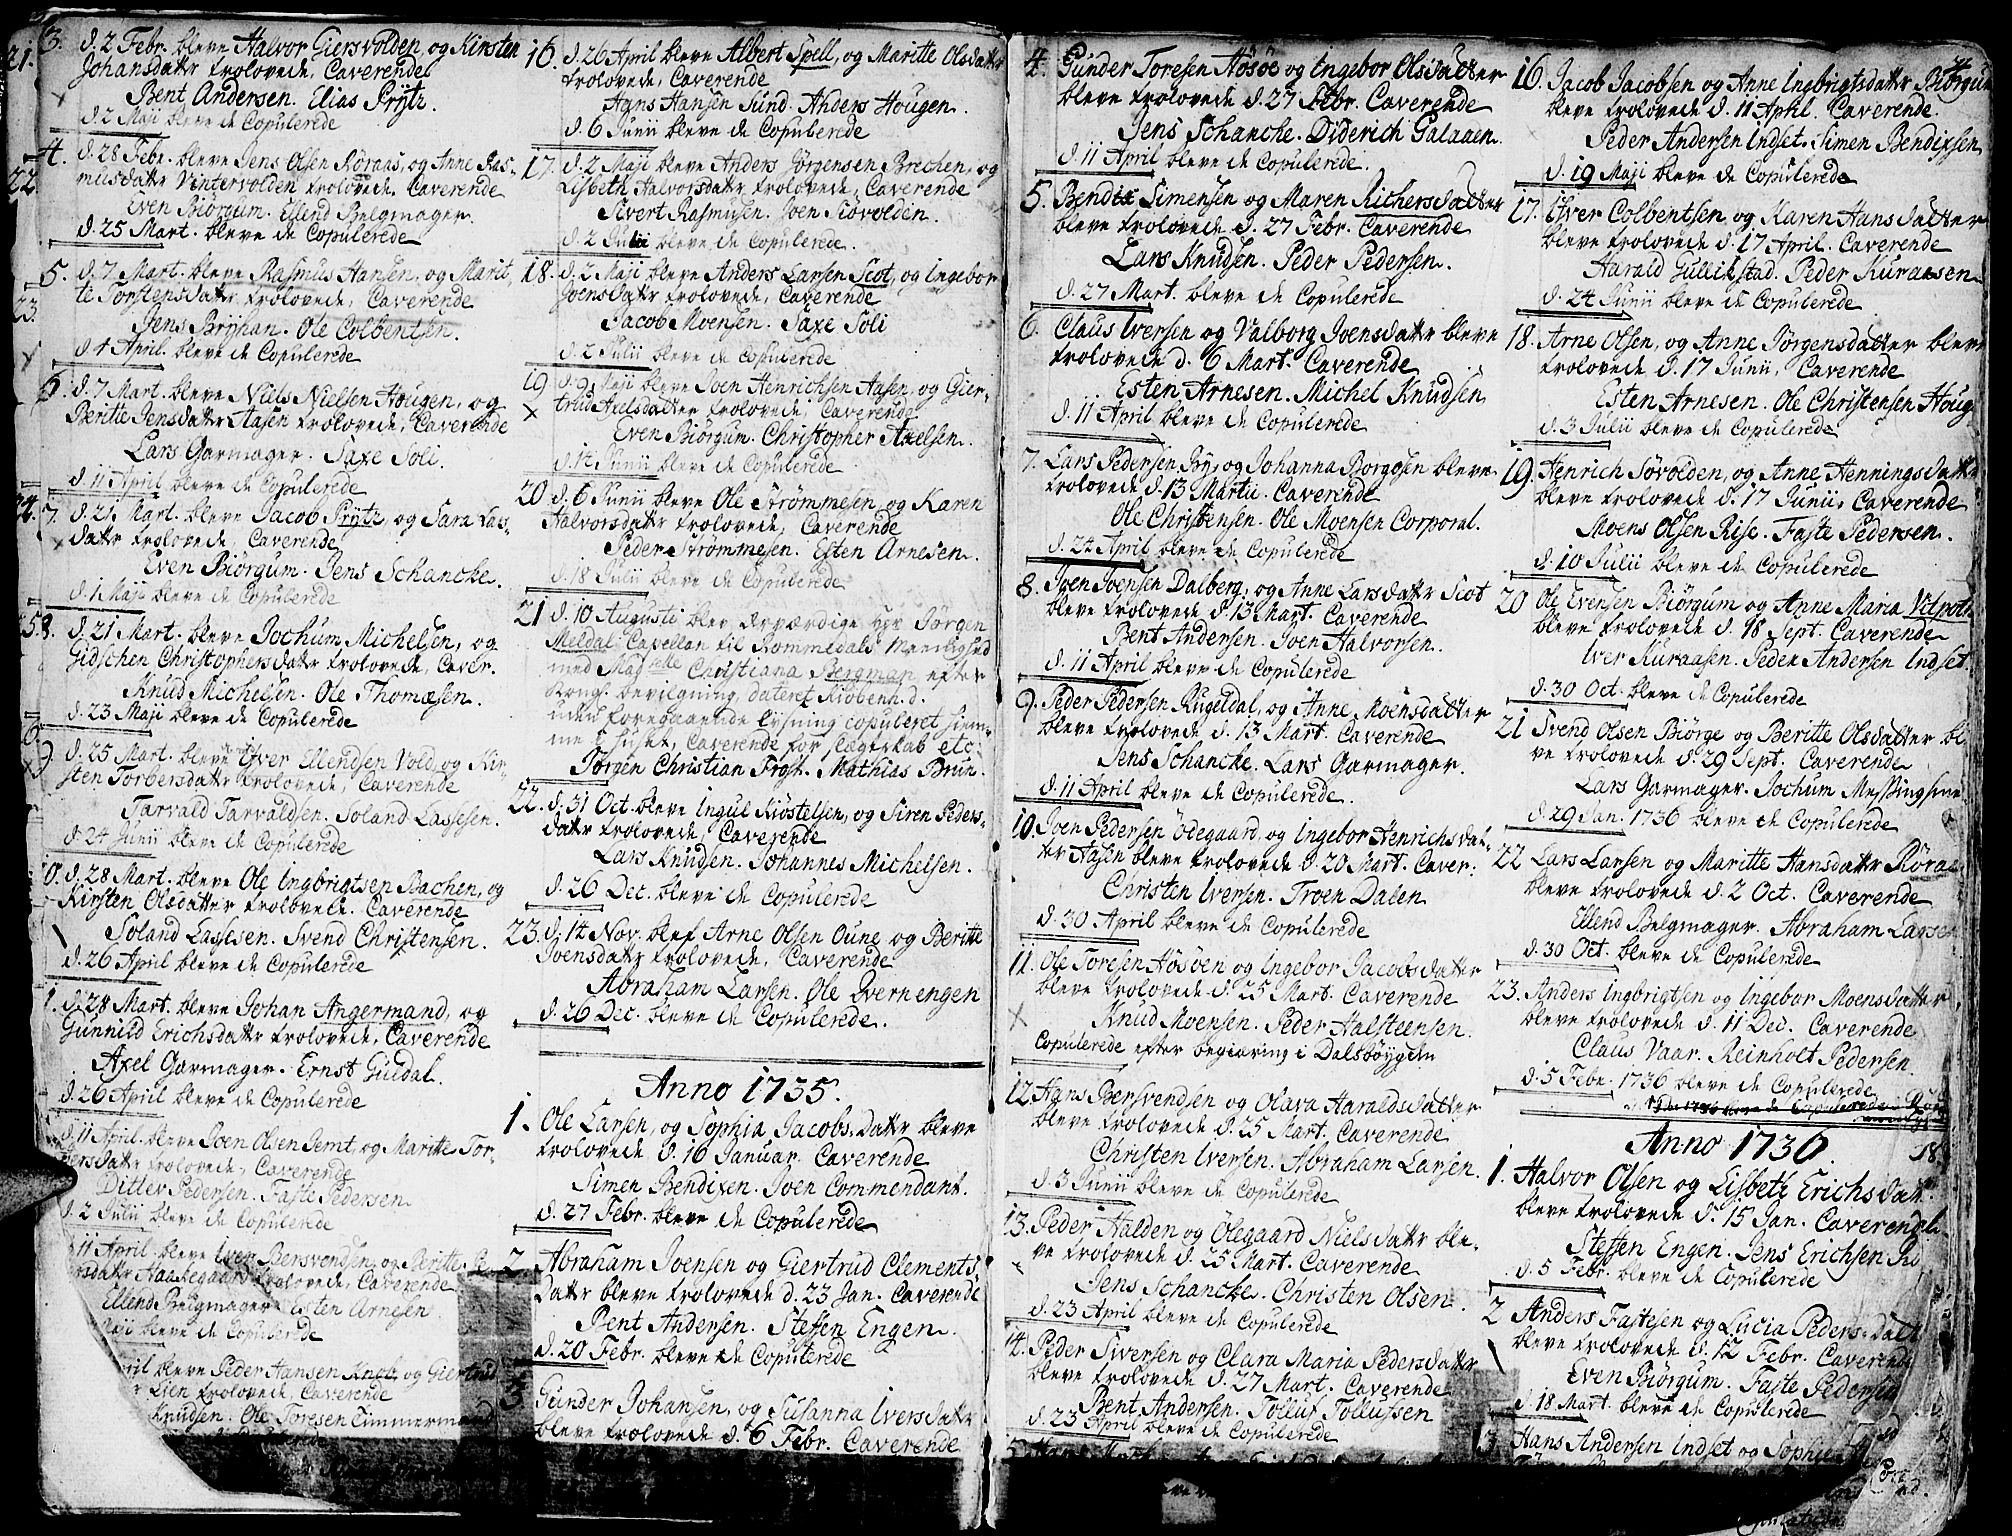 3. d. 2 Febr. bleve Halvor Giersvolden, og Kirsten
Johansdattr trolovede, Caverende
Bent Andersen. Elias Prÿtz.
d. 2 Maji bleve de Copulerede
4. d. 28 Febr. bleve Jens Olsen Røraas, og Anne Ras-
musdattr Vintervolden trolovede. Caverende
Even Biörgum. Ellend Belgmager.
d. 25 Mart. bleve de Copulerede
5. d. 7 Mart. bleve Rasmus Hansen, og Marit-
te Torstensdattr trolovede, Caverende
Jens Brÿhan. Ole Colbentsen.
d. 4 April. bleve de Copulerede
6. d. 7 Mart. bleve Niels Nielsen Hougen, og
Beritte Jensdattr Aasen trolovede, Caverende
Lars Garmager. Saxe Soli.
d. 11 April bleve de Copulerede
7. d. 21 Mart. bleve Jacob Prÿtz, og Sara Las-
dattr trolovede, Caverende
Even Biörgum. Jens Schancke.
d. 1 Maji bleve de Copulerede
8. d. 21 Mart. bleve Jochum Michelsen, og
Gidschen Christophersdattr trolovede, Caver.
Knud Michelsen. Ole Thomæsen.
d. 23 Maji bleve de Copulerede
9. d. 25 Mart. bleve Iver Ellendsen Vold, og Kir-
sten Torbersdattr trolovede, Caverende
Tarvald Tarvaldsen. Soland Lassesen.
d. 24 Junii bleve de Copulerede
10. d. 28 Mart. bleve Ole Ingbrigtsen Bachen, og
Kirsten Olsdatter trolovede. Caverende
Soland Lassesen. Svend Christensen.
d. 26 April bleve de Copulerede
d. 28 Mart. bleve Johan Angermand, og
Gunnild Erichsdattr trolovede, Caverende
Axel Garmager. Ernst Guldal.
d. 26 April bleve de Copulerede
d. 11 April. bleve Joen Olsen Jemt, og Maritte Tor-
dersdattr trolovede, Caverende
Ditlev Pedersen. Faste Pedersen
d. 2 Julii bleve de Copulerede
11 April. bleve Iver Bersvendsen, og Beritte
Haakegaard trolovede, Caverende
Ellend Belgmager. Esten Arnesen
bleve de Copulerede
bleve Peder Hansen Knob, og Giertrud
Lien trolovede, Caverende
Knudsen. Ole Toresen Timmermand
16. d. 26 April bleve Albert Spell, og Maritte Olsdattr
trolovede, Caverende
Hans Hansen Sund. Anders Hougen.
d. 6 Junii bleve de Copulerede
17. d. 2 Maji bleve Anders Jørgensen Brechen, og
Lisbeth Halvorsdattr trolovede, Caverende
Sivert Rasmusen. Joen Siövolden.
d. 2 Julii bleve de Copulerede.
18. d. 2 Maji bleve Anders Larsen Scot, og Ingebor
Joensdattr trolovede, Caverende
Jacob Moensen. Saxe Soli
d. 2 Julii bleve de Copulerede
19 d. 9 Maji bleve Joen Henrichsen Aasen, og Gier-
trud Axelsdatter trolovede, Caverende
Even Biörgum. Christopher Axelsen.
d. 14 Junii bleve de Copulerede
20 d. 6 Junii bleve Ole Strömmesen, og Karen
Halvorsdattr trolovede, Caverende
Peder Strömmesen. Esten Arnesen.
d. 18 Julii bleve de Copulerede
21 d. 10 Augusti blev Ærværdige Hr. Jørgen
Meldal Capellan til Rommedals Meenighed
med Madselle Christiana Bergman efter
Kongl. bevilgning dateret Kiöbenh. d.
uden foregaaende lysning copuleret hiem-
me i huset, Caverende for slegtskab etc:
Jørgen Christian Frost. Mathias Brun.
22. d. 31 Oct. bleve Ingul Kiöstelsen, og Siren Peders-
dattr trolovede, Caverende
Lars Knudsen. Johannes Michelsen.
d. 26 Dec. bleve de Copulerede
23. d. 14 Nov. blef Arne Olsen Oune og Beritte
Joensdattr trolovede, Caverende
Abraham Larsen. Ole Qvernengen
d. 26 Dec. bleve de Copulerede.
Anno 1735.
1. Ole Larsen, og Sophia Jacobs-dattr bleve
trolovede d. 16 Januar. Caverende
Simen Bendixen. Joen Commendant.
d. 27 Febr. bleve de Copulerede
2 Abraham Joensen og Giertrud Clements-
dattr bleve trolovede d. 23 Jan. Caverende
Bent Andersen. Steffen Engen.
d. 20 Febr. bleve de Copulerede
3 Gunder Johansen, og Susanna Iversdattr
bleve trolovede d. 6 Febr. Caverende
4. Gunder Toresen Høsöe og Ingebor Olsdatter
bleve trolovede d. 27 Febr. Caverende
Jens Schancke. Diderich Galaaen.
d. 11 April bleve de Copulerede.
5. Bendix Simensen og Maren Richersdatter
bleve trolovede d. 27 Febr. Caverende
Lars Knudsen. Peder Pedersen.
d. 27 Mart. bleve de Copulerede
6. Claus Iversen og Valborg Joensdattr bleve
trolovede d. 6 Mart. Caverende
Esten Arnesen. Michel Knudsen
d. 11 April bleve de Copulerede
7. Lars Pedersen Frÿ, og Johanna Borgosen bleve
trolovede d. 13 Martii. Caverende
Ole Christensen. Ole Moensen Corporal.
d. 24 April bleve de Copulerede
8. Joen Joensen Dalberg, og Anne Larsdattr Scot
bleve trolovede d. 13 Mart. Caverende
Bent Andersen. Joen Halvorsen.
d. 11 April bleve de Copulerede
9. Peder Pedersen Rugeldal, og Anne Moensdatter
bleve trolovede d. 13 Mart. Caverende
Jens Schancke. Lars Garmager.
d. 11 April bleve de Copulerede.
10. Joen Pedersen Ödegaard, og Ingebor Henrichsdat-
ter Aasen bleve trolovede d. 20 Mart. Caver:
Christen Iversen. Troen Dalen
d. 30 April bleve de Copulerede
11. Ole Toresen Høsöen og Ingebor Jacobsdatter
bleve trolovede d. 25 Mart. Caverende
Knud Moensen. Peder Halsteensen.
Copulerede efter begiæring i Dalsböÿgden
12 Hans Bersvendsen og Olava Haraldsdatter
bleve trolovede d. 25 Mart. Caverende
Christen Iversen. Abraham Larsen.
d. 3 Junii bleve de Copulerede
13. Peder Halden og Ölegaard Nielsdattr ble-
ve trolovede d. 25 Mart. Caverende
Jens Schancke. Christen Olsen.
d. 23 April bleve de Copulerede
14. Peder Siversen og Clara Maria Pedersdattr
bleve trolovede d. 27 Mart. Caverende
Bent Andersen. Tolluf Tollufsen
d. 23 April bleve de Copulerede
16. Jacob Jacobsen og Anne Ingbrigtsdattr Biörgum
bleve trolovede d. 11 April. Caverende.
Peder Andersen Indset. Simen Bendixsen
d. 19 Maji bleve de Copulerede
17. Iver Colbentsen og Karen Hansdatter
bleve trolovede d. 17 April. Caverende
Harald Gullikstad. Peder Kuraasen
d. 24 Junii bleve de Copulerede
18. Arne Olsen, og Anne Jørgensdatter bleve
trolovede d. 17 Junii, Caverende
Esten Arnesen. Ole Christensen Houg
d. 3 Julii bleve de Copulerede
19. Henrich Sövolden, og Anne Henningsdattr
bleve trolovede d. 17 Junii, Caverende
Moens Olsen Rise. Faste Pedersen.
d. 10 Julii bleve de Copulerede
20 Ole Evensen Biörgum og Anne Maria
bleve trolovede d. 18 Sept. Caverende
Iver Kuraasen. Peder Andersen Indset
d. 30 Oct. bleve de Copulerede
21 Svend Olsen Biörge og Beritte Olsdatter ble-
ve trolovede d. 29 Sept. Caverende
Lars Garmager. Jochum
d. 29 Jan. 1736 bleve de Copulerede
22 Lars Larsen og Maritte Hansdattr Röraas
bleve trolovede d. 2 Oct. Caverende
Ellend Belgmager. Abraham Larsen
d. 30 Oct. bleve de Copulerede
23. Anders Ingbrigtsen og Ingebor Moensdatter
bleve trolovede d. 11 Dec. Caverende
Claus Vaar. Reinholt Pedersen
d. 5 Febr. 1736 bleve de Copulerede
Anno 1736.
1. Halvor Olsen og Lisbeth Erichsdatr
bleve trolovede d. 15 Jan. Caverende
Steffen Engen. Jens Erichsen
d. 5 Febr. bleve de Copulerede
2 Anders Fastesen og Lucia Peders-datt
bleve trolovede d. 12 Febr. Caverende
Even Biörgum. Faste Pedersen
d. 18 Mart. bleve de Copulerede
3 Hans Andersen Indset og Sophie